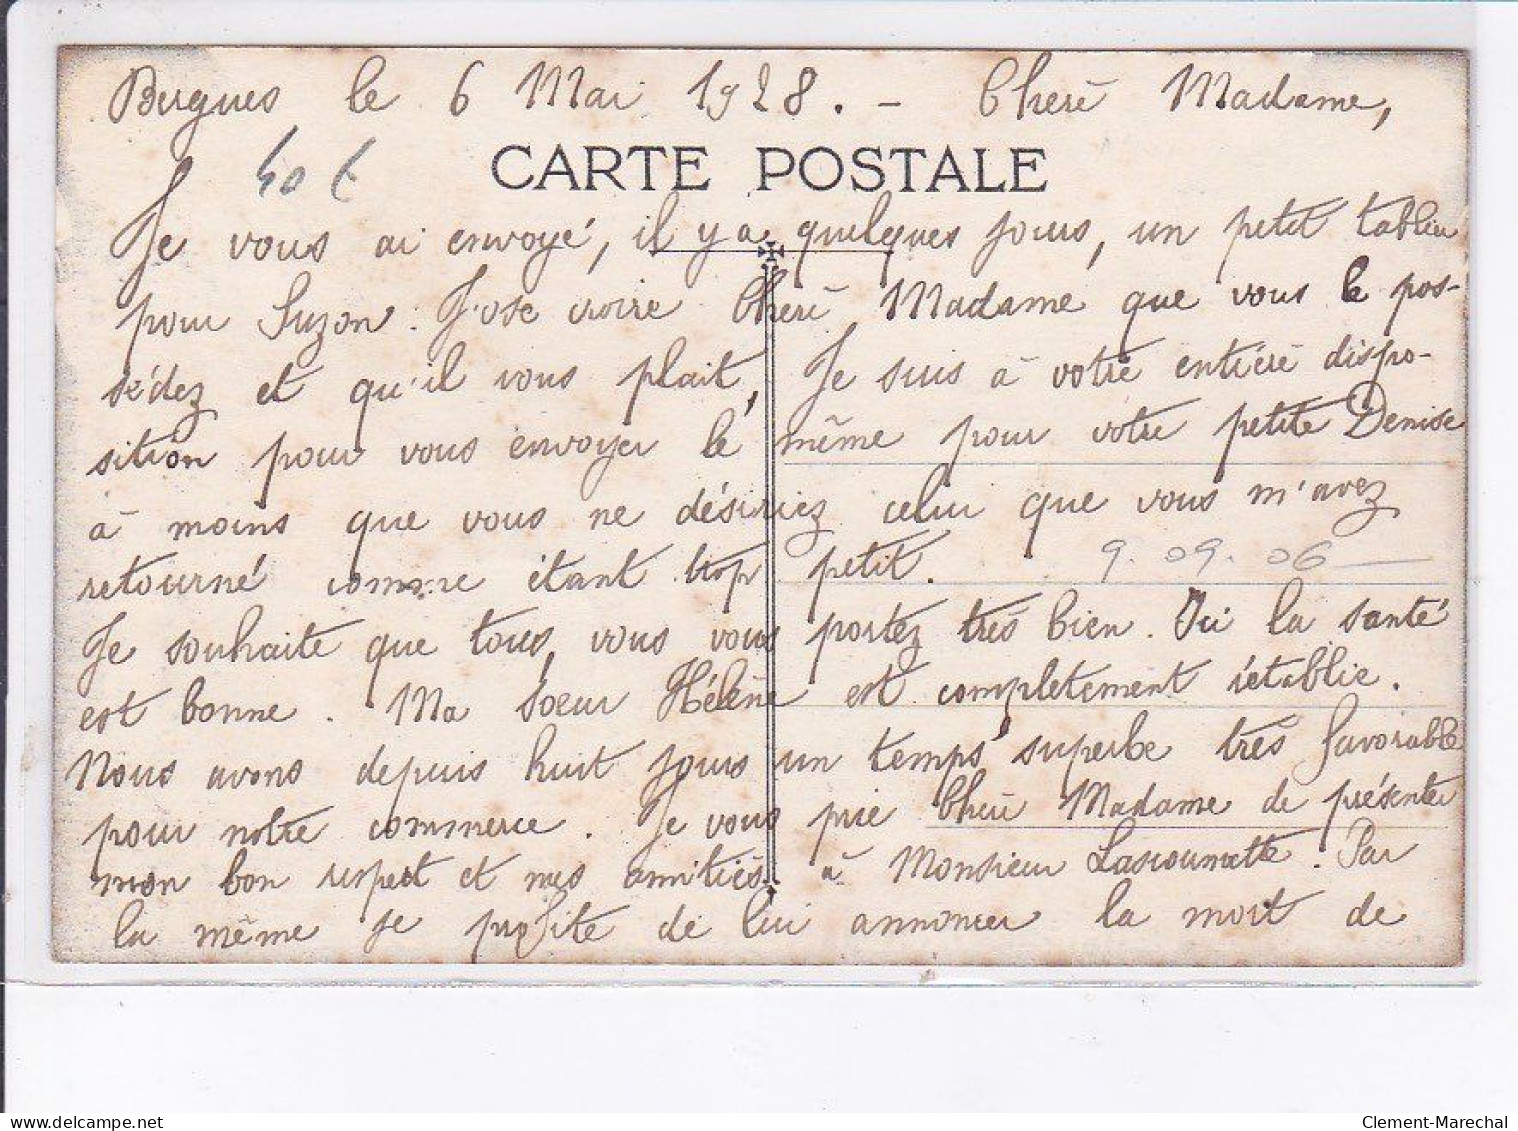 Bergues le 6 Mai 1928. - Cherè Madame,
40 €
CARTE POSTALE
Je vous ai envoyé, il y a quelques jours, un petit tablier
pour Suzon. J'ose croire Cherè Madame que vous le pos-
sédez et qu'il vous plait, Je suis à votre entière dispo-
sition pour vous envoyer le même pour votre petite Denise
à moins que vous ne désiriez celui que vous m'avez
retourné comme étant trop petit. 9.09.06
Je souhaite que tous, vous vous portez très bien. Ici la santé
est bonne. Ma Soeur Hélène est complètement rétablie.
Nous avons depuis huit jours un temps superbe très favorable
pour notre commerce. Je vous prie Cherè Madame de présenter
mon bon respect et mes amitiés à Monsieur Lascoumette. Par
la même je profite de lui annoncer la mort de
www.delcampe.net
Clement-Marechal